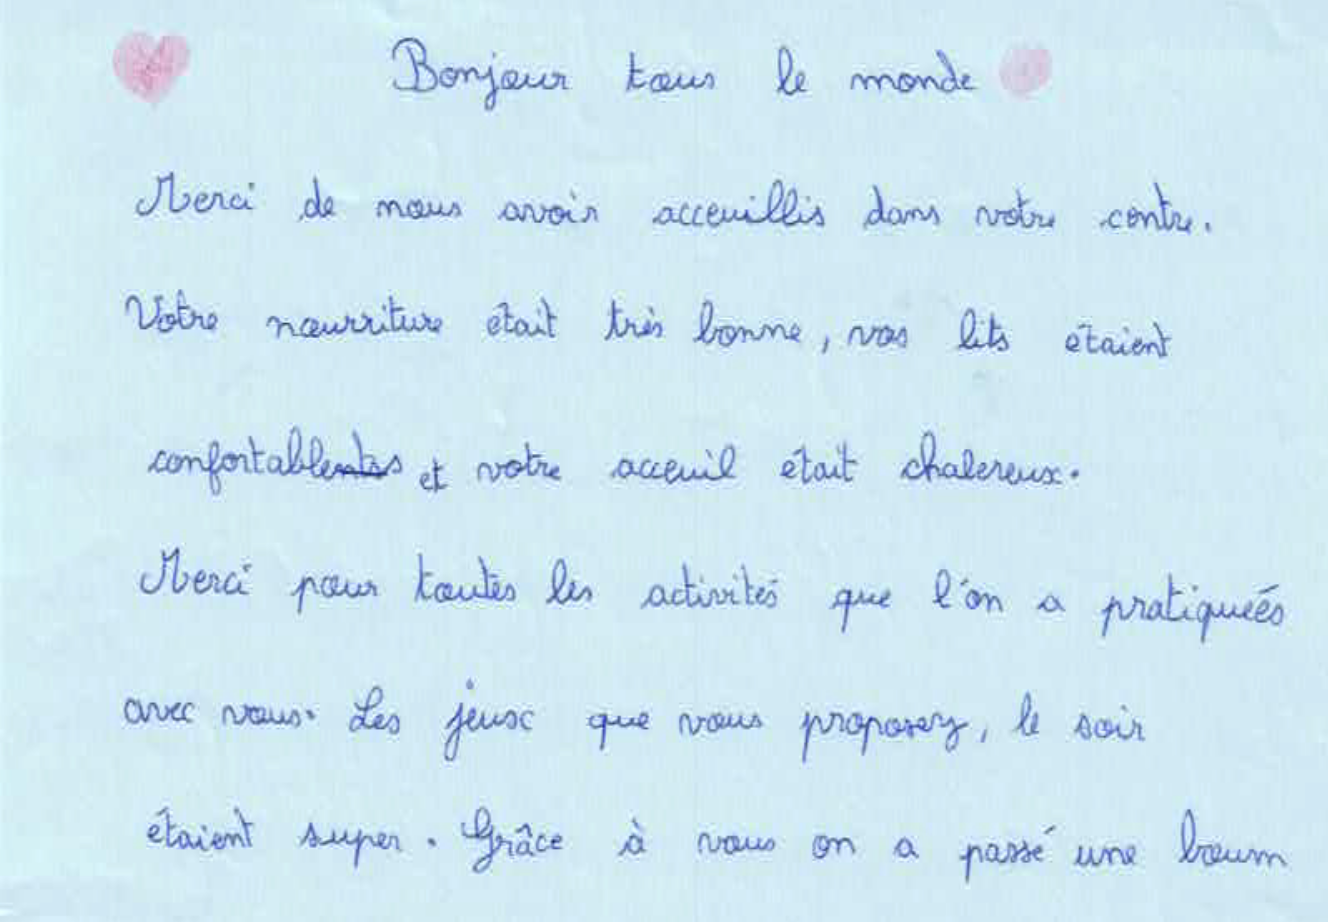 Bonjour tous le monde
Merci de nous avoir acceuillis dans votre centre.
Votre nourriture était très bonne, vos lits étaient
confortables et votre acceuil était chalereux.
Merci pour toutes les activités que l'on a pratiqueés
avec vous. Les jeux que vous proposez, le soir
étaient super. Grâce à vous on a passé une boum